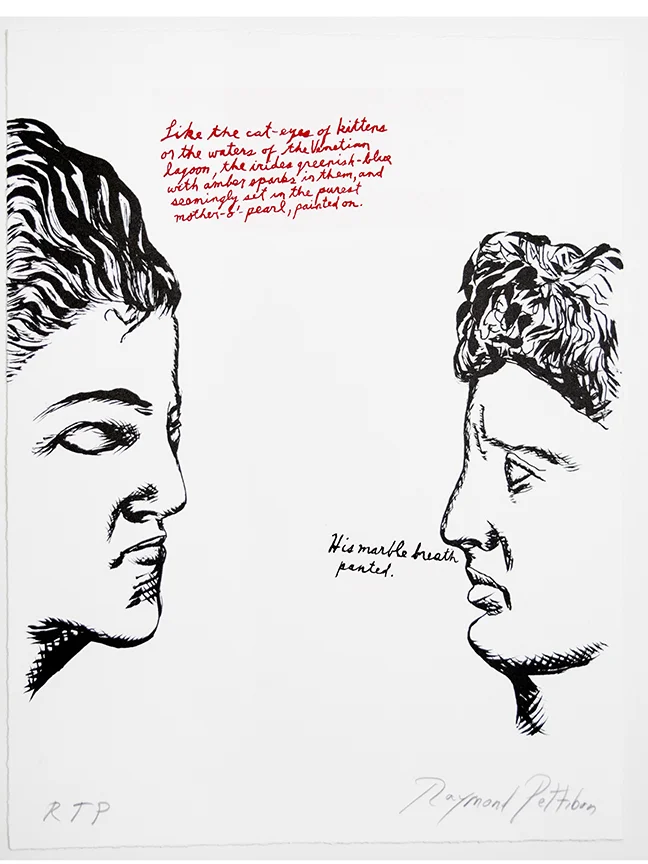 Like the cat-eyes of kittens
or the waters of the Venetian
lagoon, the irides greenish-blue
with amber sparks in them, and
seemingly set in the purest
mother-o'-pearl, painted on.
His marble breath
panted.
RTP
Raymond Pettibon